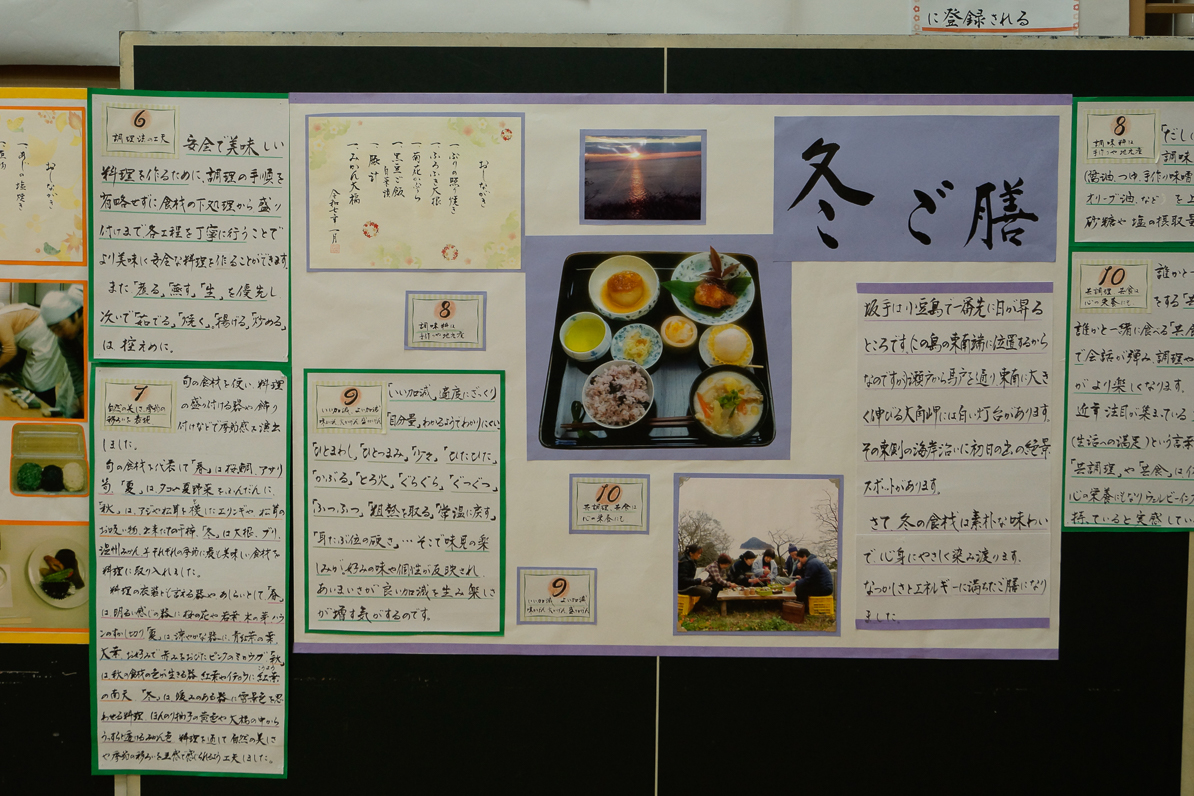 に登録される
おしながき
一、あじの塩焼き
6
調理法の工夫
安全で美味しい
料理を作るために、調理の手順を
省略せずに食材の下処理から盛り
付けまで各工程を丁寧に行うことで
より美味しく安全な料理を作ることができます。
また「煮る」「蒸す」「生」を優先し
次いで「茹でる」「焼く」「揚げる」「炒める」
は控えめに。
7
自然の美しさ、季節の
移ろいを表現
旬の食材を使い、料理
の盛り付ける器や飾り
付けなどで季節感を演出
しました。
旬の食材を代表して「春」は桜鯛、アサリ
筍「夏」はタコや夏野菜をふんだんに、
「秋」は、アジや松茸を模したエリンギや松茸の
お吸い物、出来たての干柿、「冬」は大根、ブリ、
温州みかん それぞれの季節に最も美味しい食材を
料理に取り入れました。
料理の衣装とも言える器やあしらいとして「春」
は明るい感じの器に桜の花や若葉 木の芽
「夏」は涼やかな器に、青紅葉の葉、
大葉
は、秋の食材の色が生きる器 紅葉やイチョウに紅葉
こうよう
の南天 「冬」は暖かみのある器に雪景色を思
わせる料理 ほんのり柚子の黄色や大福の中から
うっすら透けるみかん色 料理を通して自然の美しさ
や季節の移ろいを五感で感じられるよう工夫しました。
おしながき
一、ぶりの照り焼き
一、ふろふき大根
一、菊花かぶら
一、黒豆ご飯
一、豚汁
一、みかん大福
令和七年一月
8
調味料は
手作りや地元産
9
いい加減 よい加減
味かげん 火かげん 塩かげん
「いい加減」「適度に」「ざっくり」
「自分量」わかるようでわかりにくい
「ひとまわし」「ひとつまみ」「少々」「ひたひた」
「かぶる」「とろ火」「ぐらぐら」「ぐつぐつ」
「ふつふつ」「粗熱を取る」「常温に戻す」
「耳たぶ位の硬さ」…そこで味見の楽
しみが。好みの味や個性が反映され
あいまいさが良い加減を生み楽しさ
が増す気がするのです。
10
共調理 共食は
心の栄養にも
9
いい加減 よい加減
味かげん 火かげん 塩かげん
冬ご膳
坂手は小豆島で一番先に日が昇る
ところです。この島の東南端に位置するから
なのですが瀬戸から馬戸を通り東南に大き
く伸びる大角岬には白い灯台があります。
その東側の海岸沿いに初日の出の絶景
スポットがあります。
さて、冬の食材は素朴な味わい
で、心身にやさしく染み渡ります。
なつかしさとエネルギーに満ちたご膳になり
ました。
8
調味料は
手作りや地元産
「だし
調味
(醤油、つゆ、手作り味噌
オリーブ油、など)を上
砂糖や塩の摂取量
10
共調理 共食は
心の栄養にも
誰かと一
をする「共
誰かと一緒に食べる「共食
で会話が弾み、調理や
がより楽しくなります。
近年注目が集まっている
(生活への満足)という言葉
「共調理」や「共食」は
心の栄養にもなりウェルビーイング
持っていると実感してい